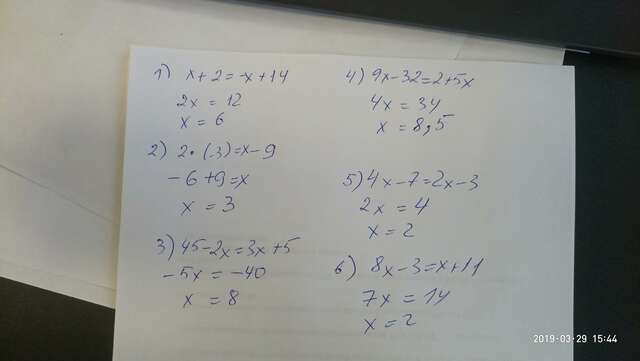 1) x+2=-x+14
2x = 12
x = 6
2) 2·(3)=x-9
-6+9=x
x = 3
3) 45-2x=3x+5
-5x = -40
x = 8
4) 9x-32=2+5x
4x = 34
x = 8,5
5) 4x-7=2x-3
2x = 4
x = 2
6) 8x-3=x+11
7x = 14
x = 2
2019-03-29 15:44